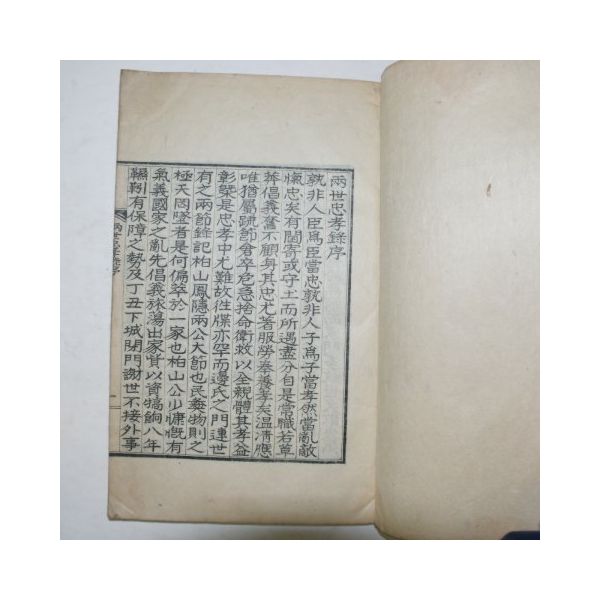 兩世忠孝錄序
孰非人臣爲臣當忠孰非人子爲子當孝然當亂敵
愾忠矣有閫寄或守土而所遇盡分自是當職若草
莽倡義奮不顧身其忠尤著服勞奉養孝矣溫凊應
唯猶屬疏節倉卒危急捨命衛效以全親體其孝益
彰槩是忠孝中尤難故徃牒亦罕而邊氏之門連世
有之兩節錄記柏山鳳隱兩公大節也民彝物則之
極天罔墜者是何偏萃於一家也柏山公少慷慨有
氣義國家之亂先倡義旅蕩出家貲以資犒餉八年
羈靮有保障之勢及丁丑下城閉門謝世不接外事
兩世忠孝錄序
一